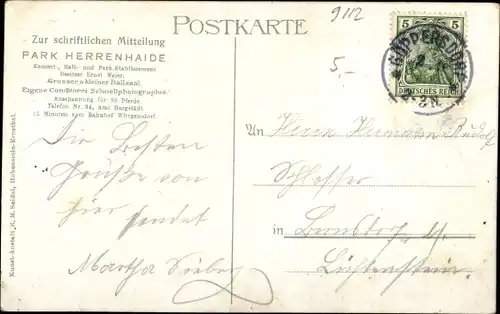 POSTKARTE
9112
5,-
Zur schriftlichen Mitteilung
PARK HERRENHAIDE
Konzert-, Ball- und Park-Etablissement
Besitzer Ernst Meier.
Grosser u. kleiner Ballsaal.
Eigene Conditorei Schnellphotographie.
Ausspannung für 80 Pferde.
Telefon Nr. 94, Amt Burgstädt.
15 Minuten vom Bahnhof Wittgensdorf.
5 5
DEUTSCHES REICH
Die Besten
Grüße von
hier sendet
Martha
An Herrn Hermann Rudolf
Schlosser
in Bernsdorf
Lichtenstein.
Kunst-Anstalt, E. M. Seidel, Hohenstein-Ernstthal.